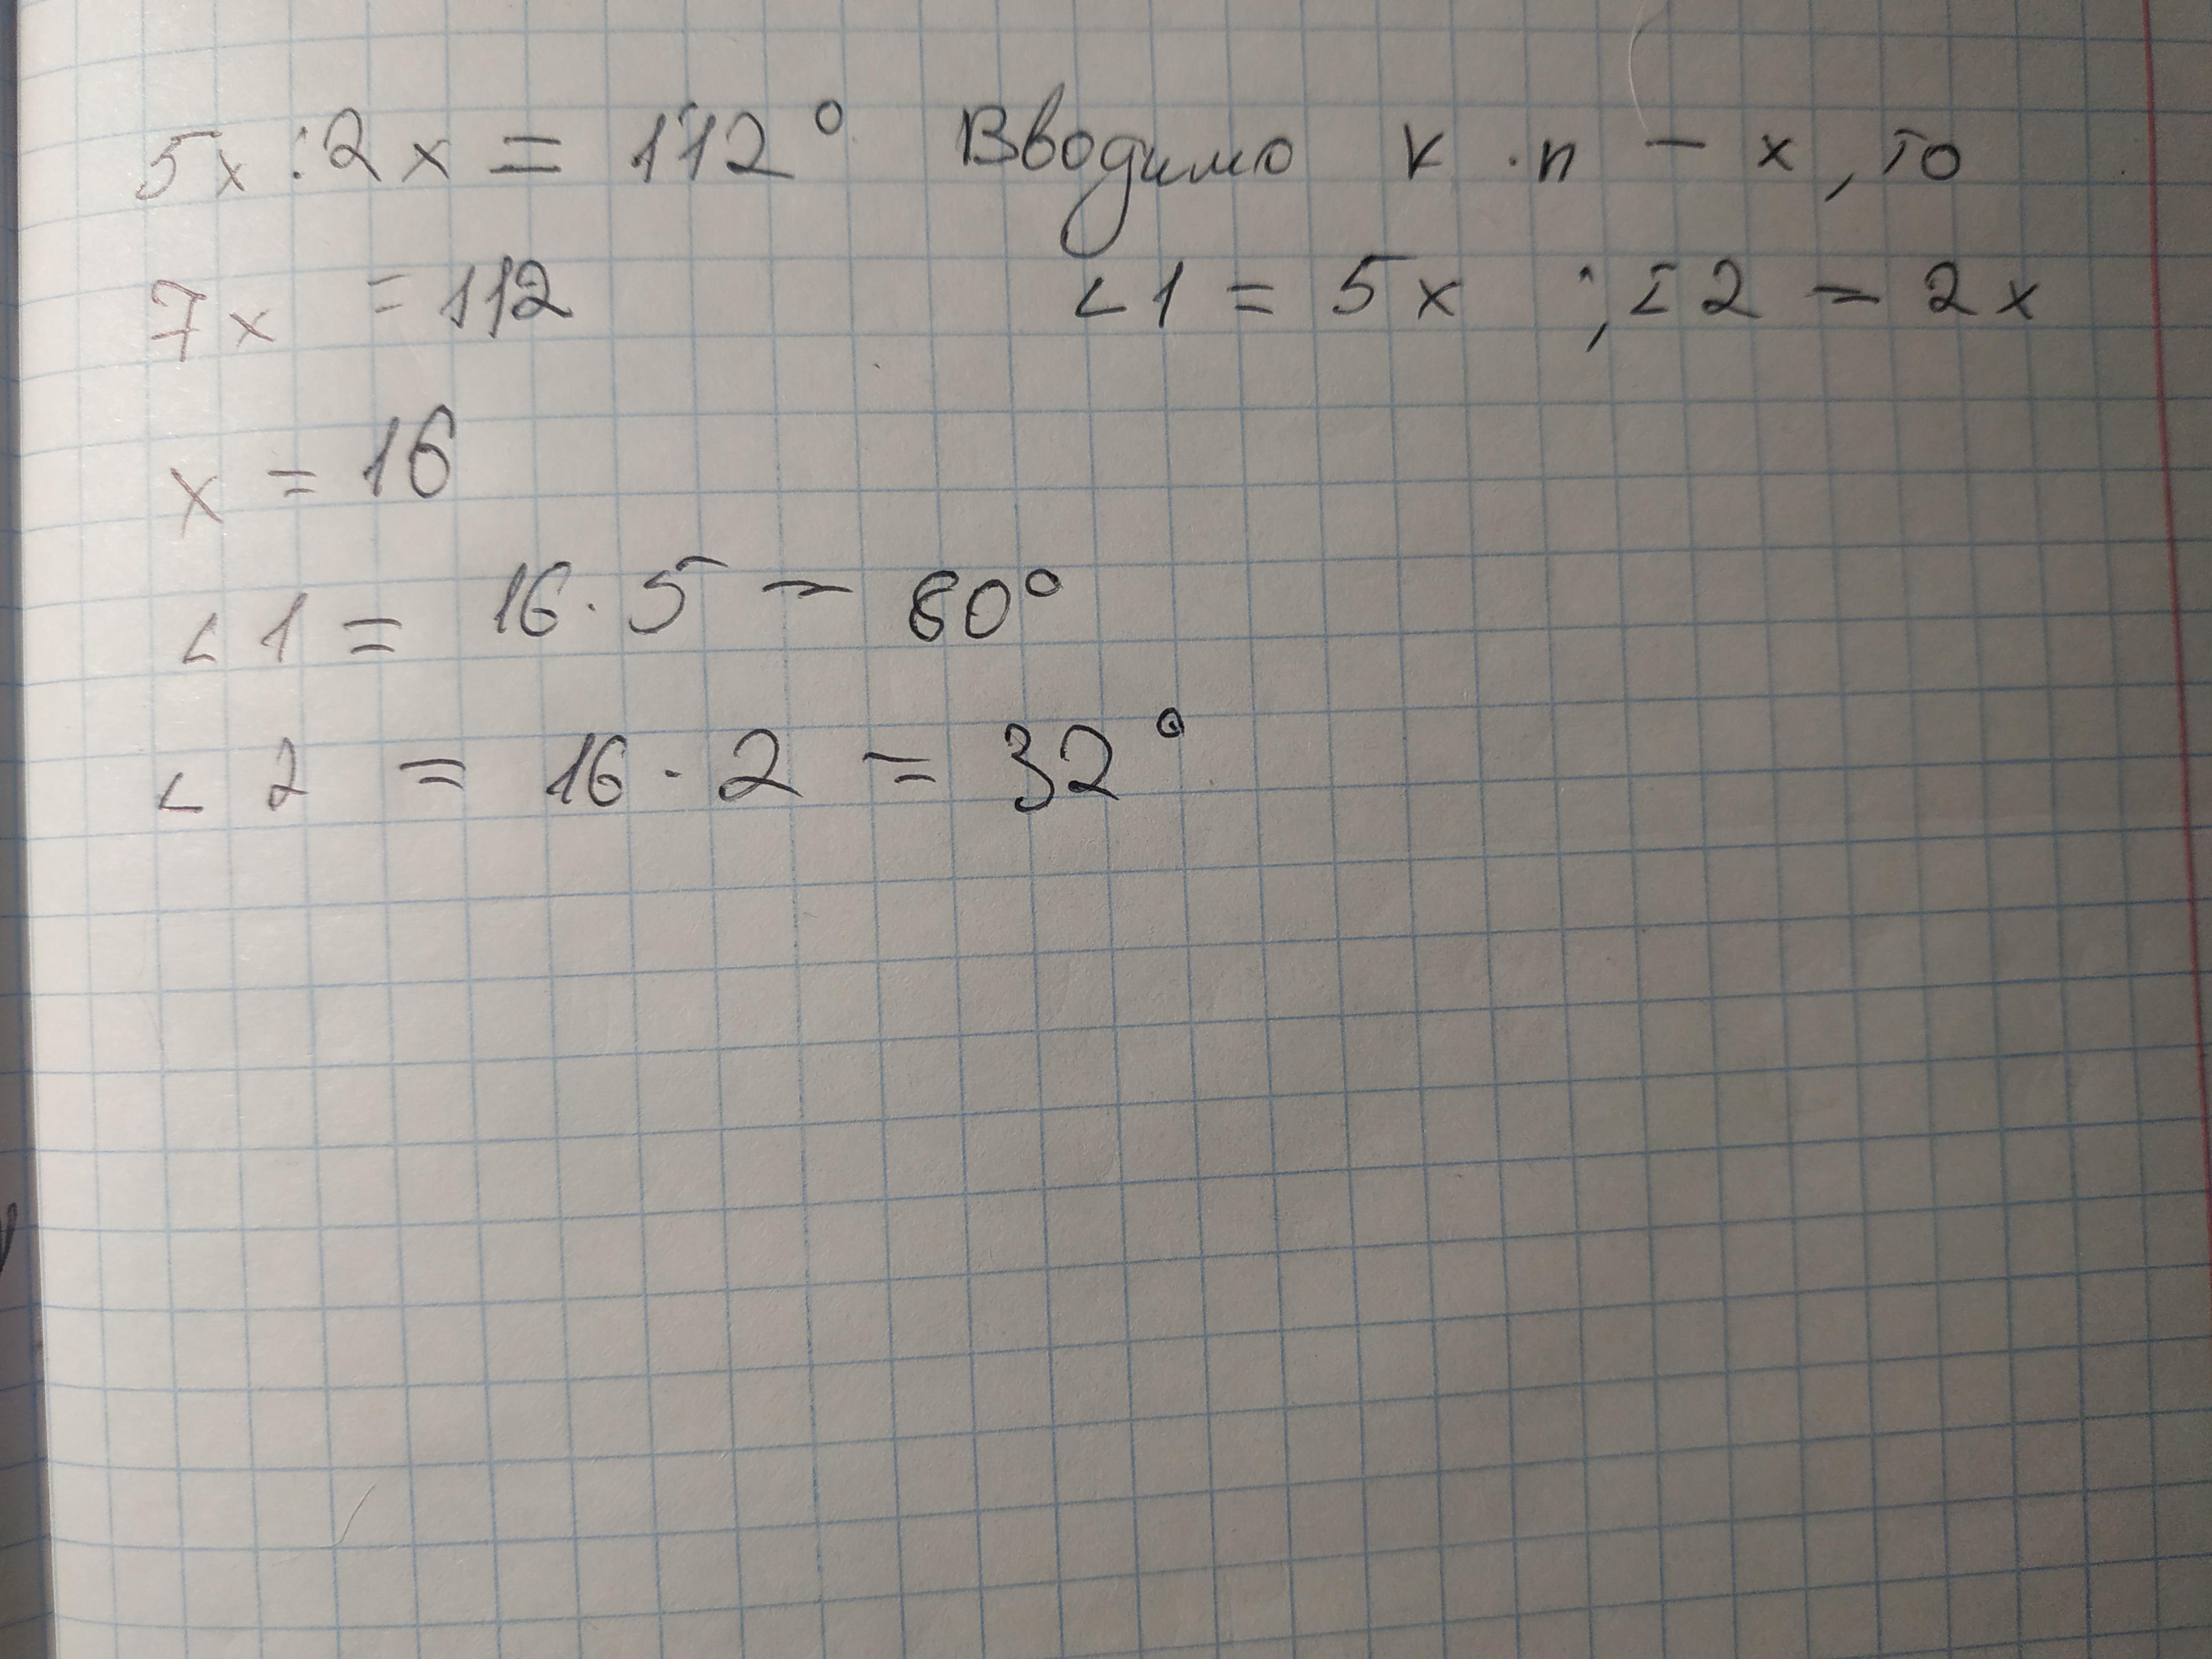 5x : 2x = 112° Вводимо к.п - x, то
7x = 112 ∠1 = 5x ; ∠2 = 2x
x = 16
∠1 = 16 · 5 = 80°
∠2 = 16 · 2 = 32°